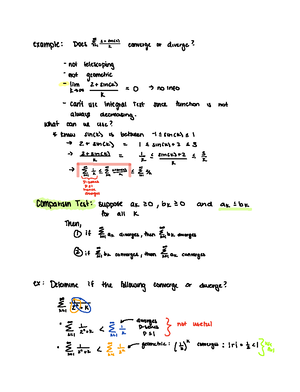 example: Does ∞∑k=1 2+sin(k)/k converge or diverge?
- not telescoping
- not geometric
- lim k→∞ 2+sin(k)/k = 0 → no info
- can't use Integral Test since function is not
always decreasing.
What can we use?
know sin(k) is between -1 ≤ sin(k) ≤ 1
→ 2+sin(k) = 1 ≤ sin(k)+2 ≤ 3
→ 2+sin(k)/k = 1/k ≤ sin(k)+2/k ≤ 3/k
→ ∞∑k=1 1/k ≤ ∞∑k=1 ≤ ∞∑k=1 3/k
p-series
p=1
diverges
Comparison Test: suppose ak ≥ 0, bk ≥ 0 and ak ≤ bk
for all k
Then,
① if ∞∑k=1 ak diverges, then ∞∑k=1 bk diverges
② if ∞∑k=1 bk converges, then ∞∑k=1 ak converges
ex: Determine if the following converge or diverge?
∞∑k=1 1/2^k+k
• ∞∑k=1 1/2^k+k < ∞∑k=1 1/k diverges p-series p=1 } not useful
• ∞∑k=1 1/2^k+k < ∞∑k=1 1/2^k geometric: (1/2)^k converges : |r| = 1/2 < 1